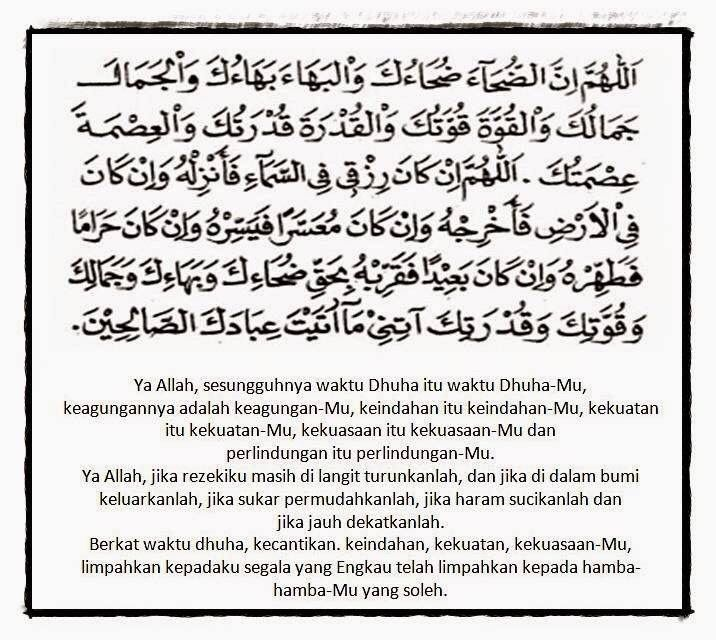 اَللّٰهُمَّ اِنَّ الضُّحَآءَ ضُحَاءُكَ وَالْبَهَاءَ بَهَاءُكَ وَالْجَمَالَ
جَمَالُكَ وَالْقُوَّةَ قُوَّتُكَ وَالْقُدْرَةَ قُدْرَتُكَ وَالْعِصْمَةَ
عِصْمَتُكَ . اَللّٰهُمَّ اِنْ كَانَ رِزْقِى فِى السَّمَآءِ فَأَنْزِلْهُ وَاِنْ كَانَ
فِى الْاَرْضِ فَأَخْرِجْهُ وَاِنْ كَانَ مُعَسَّرًا فَيَسِّرْهُ وَاِنْ كَانَ حَرَامًا
فَطَهِّرْهُ وَاِنْ كَانَ بَعِيْدًا فَقَرِّبْهُ بِحَقِّ ضُحَاءِكَ وَبَهَاءِكَ وَجَمَالِكَ
وَقُوَّتِكَ وَقُدْرَتِكَ آتِنِىْ مَآاَتَيْتَ عِبَادَكَ الصَّالِحِيْنَ.
Ya Allah, sesungguhnya waktu Dhuha itu waktu Dhuha-Mu,
keagungannya adalah keagungan-Mu, keindahan itu keindahan-Mu, kekuatan
itu kekuatan-Mu, kekuasaan itu kekuasaan-Mu dan
perlindungan itu perlindungan-Mu.
Ya Allah, jika rezekiku masih di langit turunkanlah, dan jika di dalam bumi
keluarkanlah, jika sukar permudahkanlah, jika haram sucikanlah dan
jika jauh dekatkanlah.
Berkat waktu dhuha, kecantikan. keindahan, kekuatan, kekuasaan-Mu,
limpahkan kepadaku segala yang Engkau telah limpahkan kepada hamba-
hamba-Mu yang soleh.